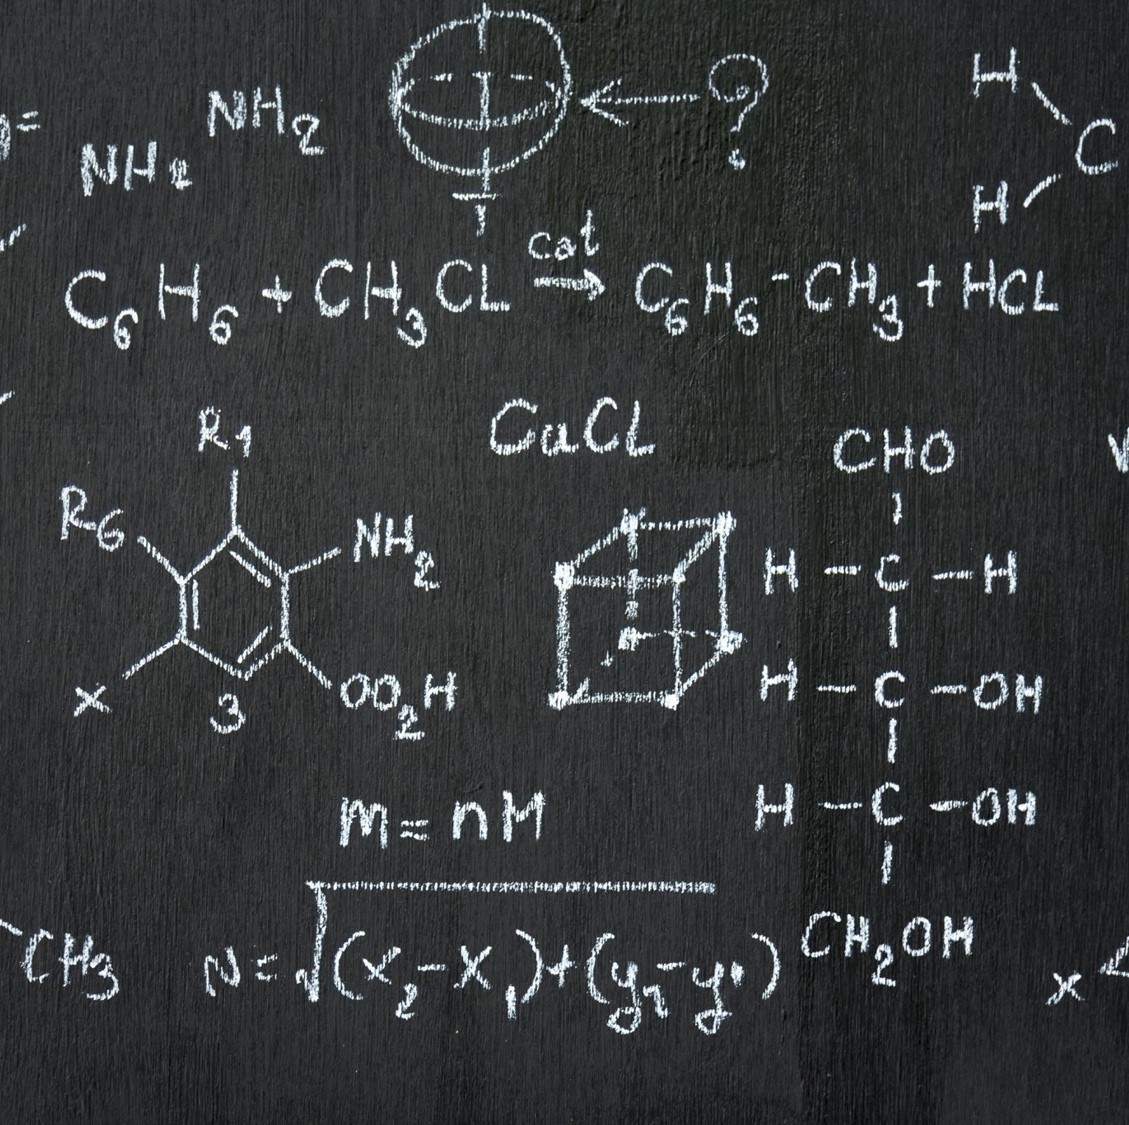 NH2
NH2
?
H
C
H
C6H6 + CH3CL cat → C6H6 - CH3 + HCL
CaCL
R1
R6
NH2
X
3
OO2H
CHO
H - C - H
H - C - OH
H - C - OH
CH2OH
m = nM
CH3
N = √(x2 - x1) + (y2 - y1)
x